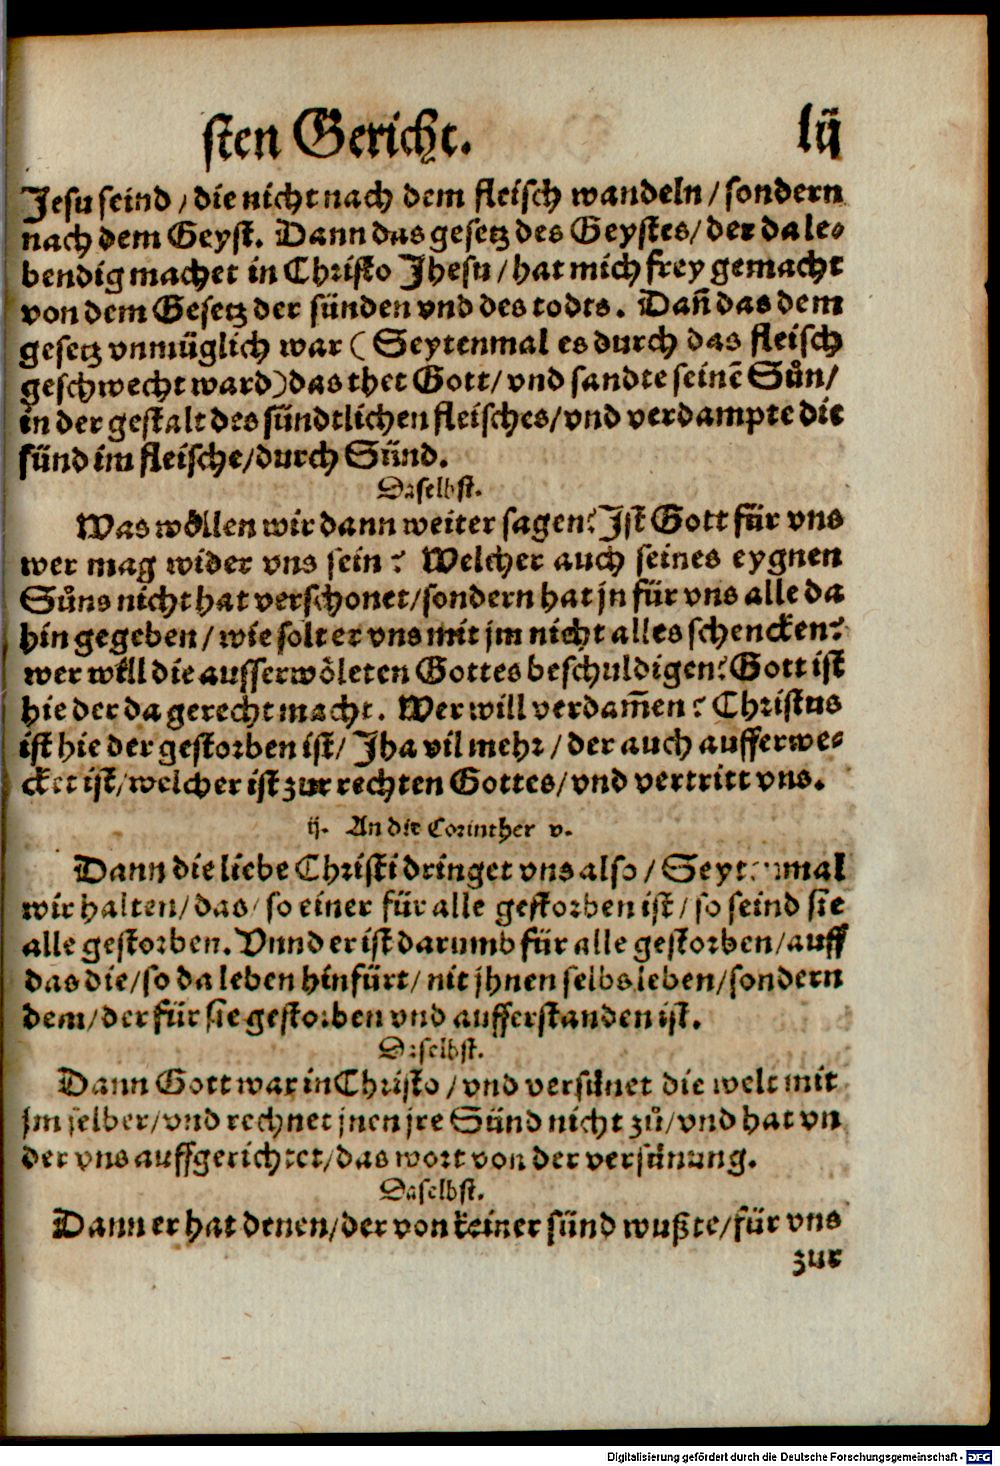 sten Gericht. lij
Jesu seind / die nicht nach dem fleisch wandeln / sondern
nach dem Geyst. Dann das gesetz des Geystes / der da le⸗
bendig machet in Christo Jhesu / hat mich frey gemacht
von dem Gesetz der sünden vnd des todts. Dañ das dem
gesetz vnmüglich war ( Seytenmal es durch das fleisch
geschwecht ward) das thet Gott / vnd sandte seinē Sůn /
in der gestalt des sündtlichen fleisches / vnd verdampte die
sünd im fleische / durch Sünd.
Daselbst.
Was wöllen wir dann weiter sagen? Jst Gott für vns
wer mag wider vns sein? Welcher auch seines eygnen
Sůns nicht hat verschonet / sondern hat jn für vns alle da
hin gegeben / wie solt er vns mit jm nicht alles schencken?
wer will die ausserwöleten Gottes beschuldigen? Gott ist
hie der da gerecht macht. Wer will verdam̄en? Christus
ist hie der gestorben ist / Jha vil mehr / der auch aufferwe⸗
cket ist / welcher ist zur rechten Gottes / vnd vertritt vns.
ij. An die Corinther v.
Dann die liebe Christi dringet vns also / Seytenmal
wir halten / das / so einer für alle gestorben ist / so seind sie
alle gestorben. Vnnd er ist darumb für alle gestorben / auff
das die / so da leben hinfürt / nit jhnen selbs leben / sondern
dem / der für sie gestorben vnd aufferstanden ist.
Daselbst.
Dann Gott war in Christo / vnd versünet die welt mit
jm selber / vnd rechnet jnen jre Sünd nicht zů / vnd hat vn
der vns auffgerichtet / das wort von der versünung.
Daselbst.
Dann er hat denen / der von keiner sünd wußte / für vns
zur
Digitalisierung gefördert durch die Deutsche Forschungsgemeinschaft - DFG